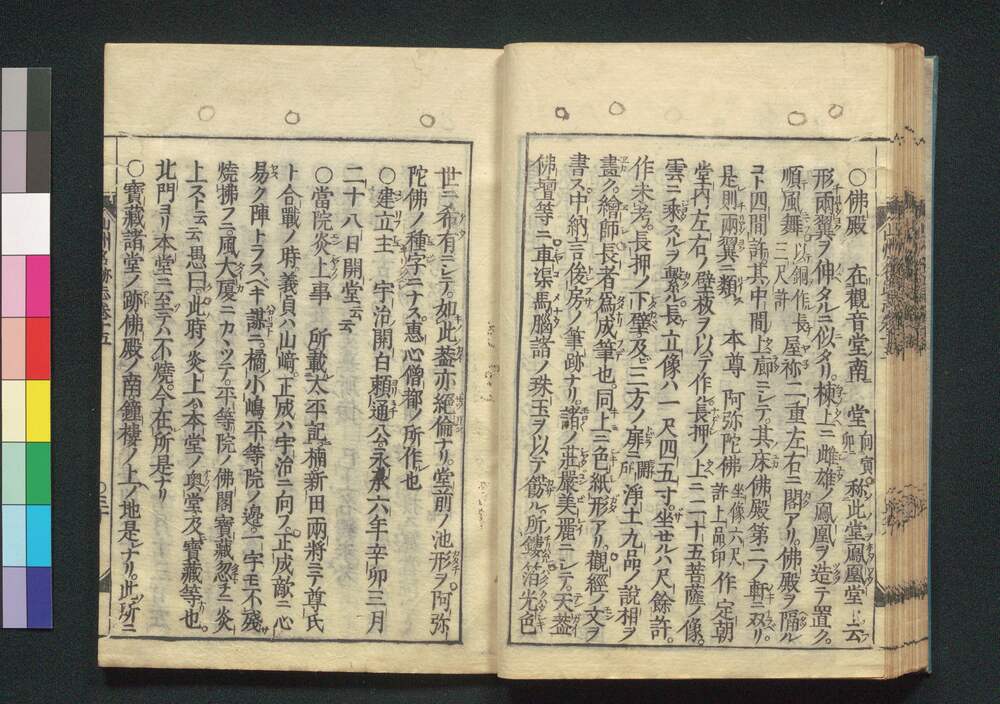 ○佛殿　在觀音堂南　堂向寅卯　称此堂鳳凰堂ト云
形兩翼ヲ伸タルニ似タリ。棟上ニ雌雄ノ鳳凰ヲ造テ置ク。
順風舞　以銅作長三尺許　屋祢二重左右ニ閣アリ。佛殿ヲ隔ル
コト四間許其中間上廊ニシテ。其床佛殿第二ノ軒ニ双リ。
是則兩翼ニ類　本尊　阿弥陀佛　坐像六尺許上品印　作定朝
堂内左右ノ壁板ヲ以テ作ル長押ノ上ニ二十五菩薩ノ像。
雲ニ乘スルヲ繫ル長ケ立像ハ一尺四五寸。坐セルハ尺餘許。
作未考。長押ノ下壁及三方ノ扉ニ所圖淨土九品ノ說相ヲ
畵ク。繪師長者為成筆也。同上ニ色紙形アリ。觀經ノ文ヲ
書ス。中納言俊房ノ筆跡ナリ。諸ノ莊嚴美麗ニシテ。天蓋
佛壇等ニ車渠馬腦諸ノ珠玉ヲ以テ餝ル所鏤箔光色
世ニ希有ニシテ如此蓋亦絕倫ナリ。堂前ノ池形ヲ阿弥
陀佛ノ種字ニナス。惠心僧都ノ所作也
○建立主　宇治關白賴通公永承六年辛卯三月
二十八日開堂云云
○當院炎上事　所載太平記。楠新田兩將ニテ尊氏
ト合戰ノ時。義貞ハ山﨑。正成ハ宇治ニ向フ。正成敵ニ心
易ク陣トラスベキ謀ニ。橘小嶋平等院ノ邉。一宇モ不殘
燒拂フニ。風大廈ニカヽツテ。平等院ノ佛閣寶藏忽ニ炎
上スト云云　愚曰。此時ノ炎上ハ本堂ノ奧堂及寶藏等也。
北門ヨリ本堂ニ至テハ不燒。今在所是ナリ
○寶藏諸堂ノ跡佛殿ノ南鐘樓ノ上ノ地是ナリ。此所ニ